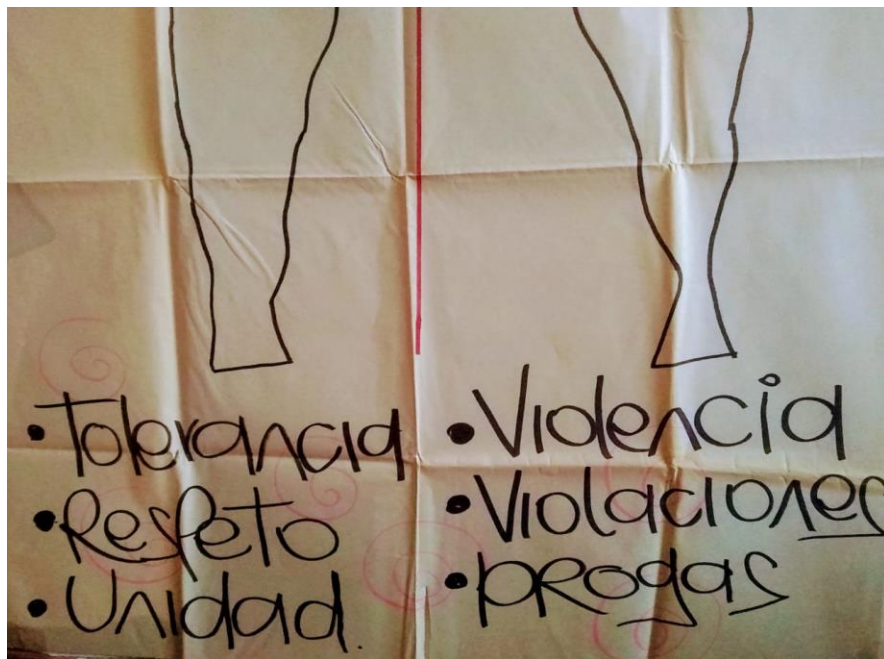 • Tolerancia
• Respeto
• Unidad.
• Violencia
• Violaciones
• Drogas